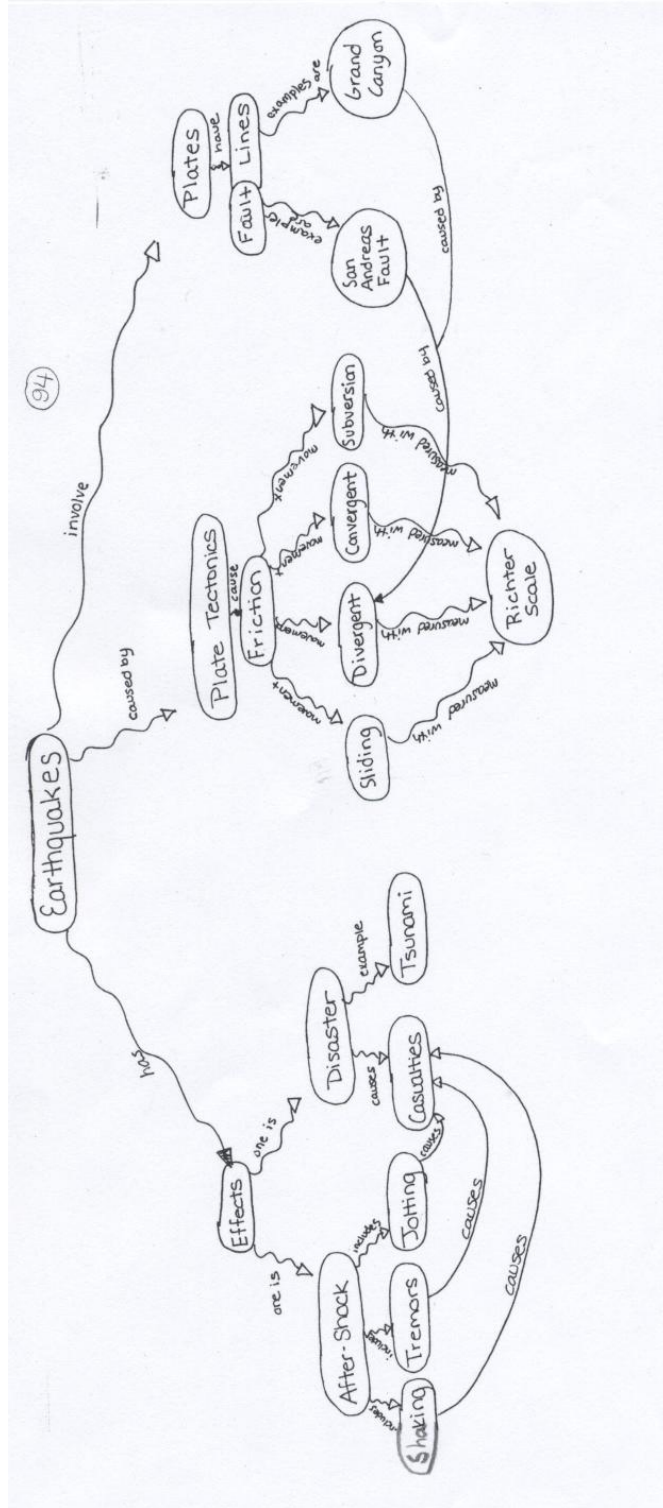 94
Earthquakes
has
caused by
involve
Effects
one is
one is
After-Shock
includes
includes
includes
Shaking
Tremors
Jolting
causes
causes
causes
Disaster
causes
example
Casualties
Tsunami
Plate Tectonics
cause
Friction
movement
movement
movement
movement
Sliding
Divergent
Convergent
Subversion
measured with
measured with
measured with
measured with
Richter
Scale
Plates
have
Fault Lines
example
are
examples are
San
Andreas
Fault
Grand
Canyon
caused by
caused by